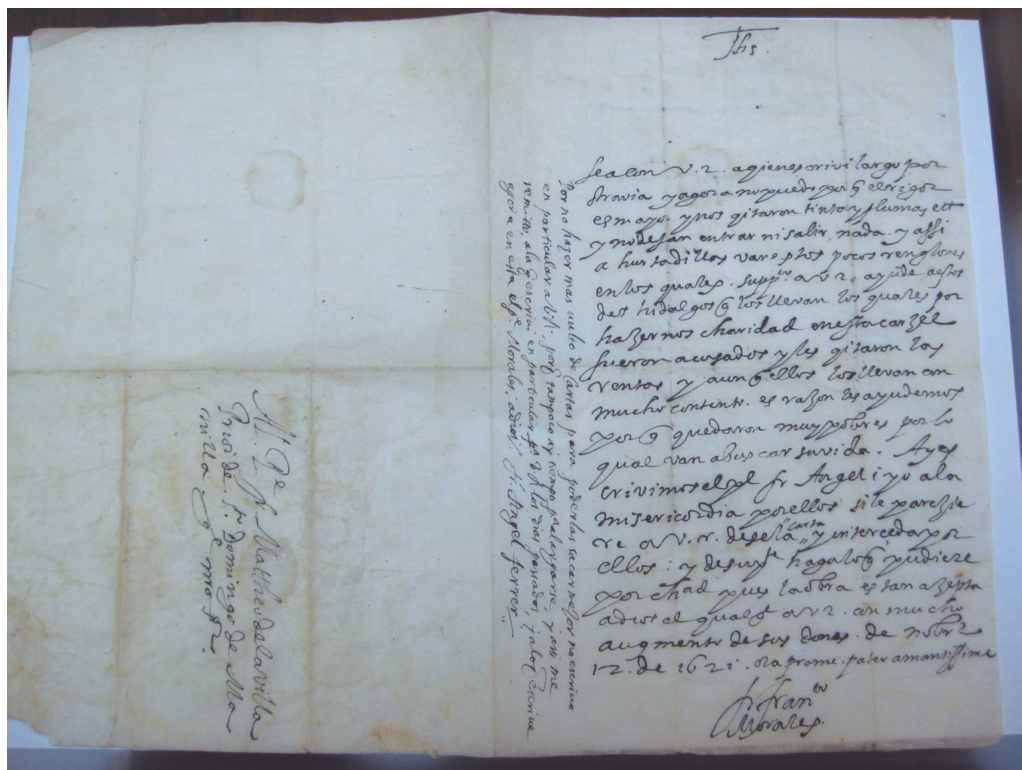 Jhs.
sea con V. R. a qien escrivi largo por
otra via y agora no puedo por q̃ el rigor
es mayor y nos qitaron tinta y plumas ett
y no dejan entrar ni salir nada. y assi
a hurtadillos van estos pocos renglones
en los quales. suppco. a V. R. ayude a estos
dos hidalgos q̃ los llevan los quales por
hazernos charidad en esta carzel
fueron acusados y les qitaron las
rentas y aunq̃ ellos los llevan con
mucho contento. es razon les ayudemos
por q̃ quedaron muy pobres por lo
qual van a buscar su vida. Ay es
crivimos el pe fr Angel i yo a la
misericordia por ellos si le parezie
re a V. r. desela carta y interceda por
ellos: y de supte haga lo q̃ pudiere
por chad pues la obra es tan azepta
a dios el qual gde a V R. con mucho
augmento de sus dones. de nobre
12. de 1621. ora pro me. pater amantissime
fr. franco
Morales.
Por no hazer mas bulto de cartas para poderlas sacar mejor no escrivo
en particular a V. R. porq̃ tampoco ay tiempo pa alargarse, y assi me
remitto a la q̃ escrivi en particular a V. R. los dias pasados, y a lo q̃ escrive
agora en esta el pe. Morales, a dios. fr. Angel ferrer
Al Pe
P. fr. Mattheo de la villa
Prior de Sto. Domingo de Ma
nilla